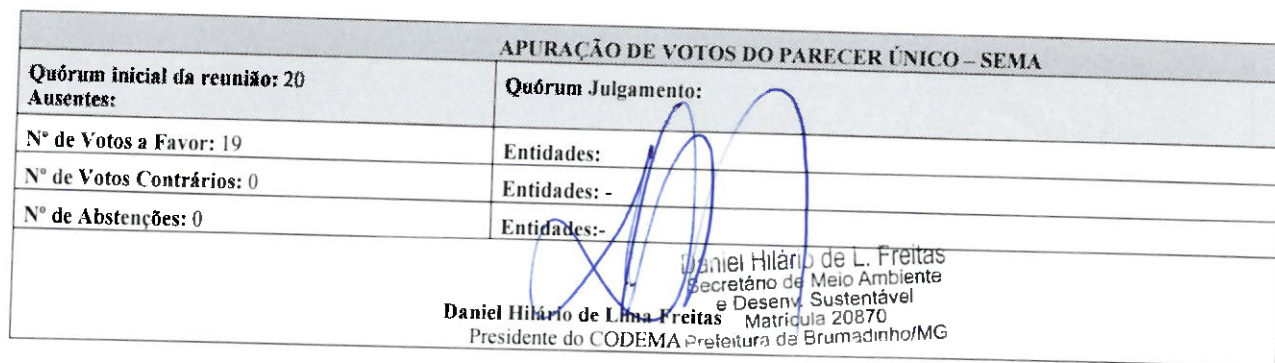 APURAÇÃO DE VOTOS DO PARECER ÚNICO – SEMA
Quórum inicial da reunião: 20
Ausentes:
Quórum Julgamento:
Nº de Votos a Favor: 19
Entidades:
Nº de Votos Contrários: 0
Entidades: -
Nº de Abstenções: 0
Entidades:-
Daniel Hilário de L. Freitas
Secretário de Meio Ambiente
e Desenv. Sustentável
Matrícula 20870
Prefeitura de Brumadinho/MG
Daniel Hilário de Lima Freitas
Presidente do CODEMA